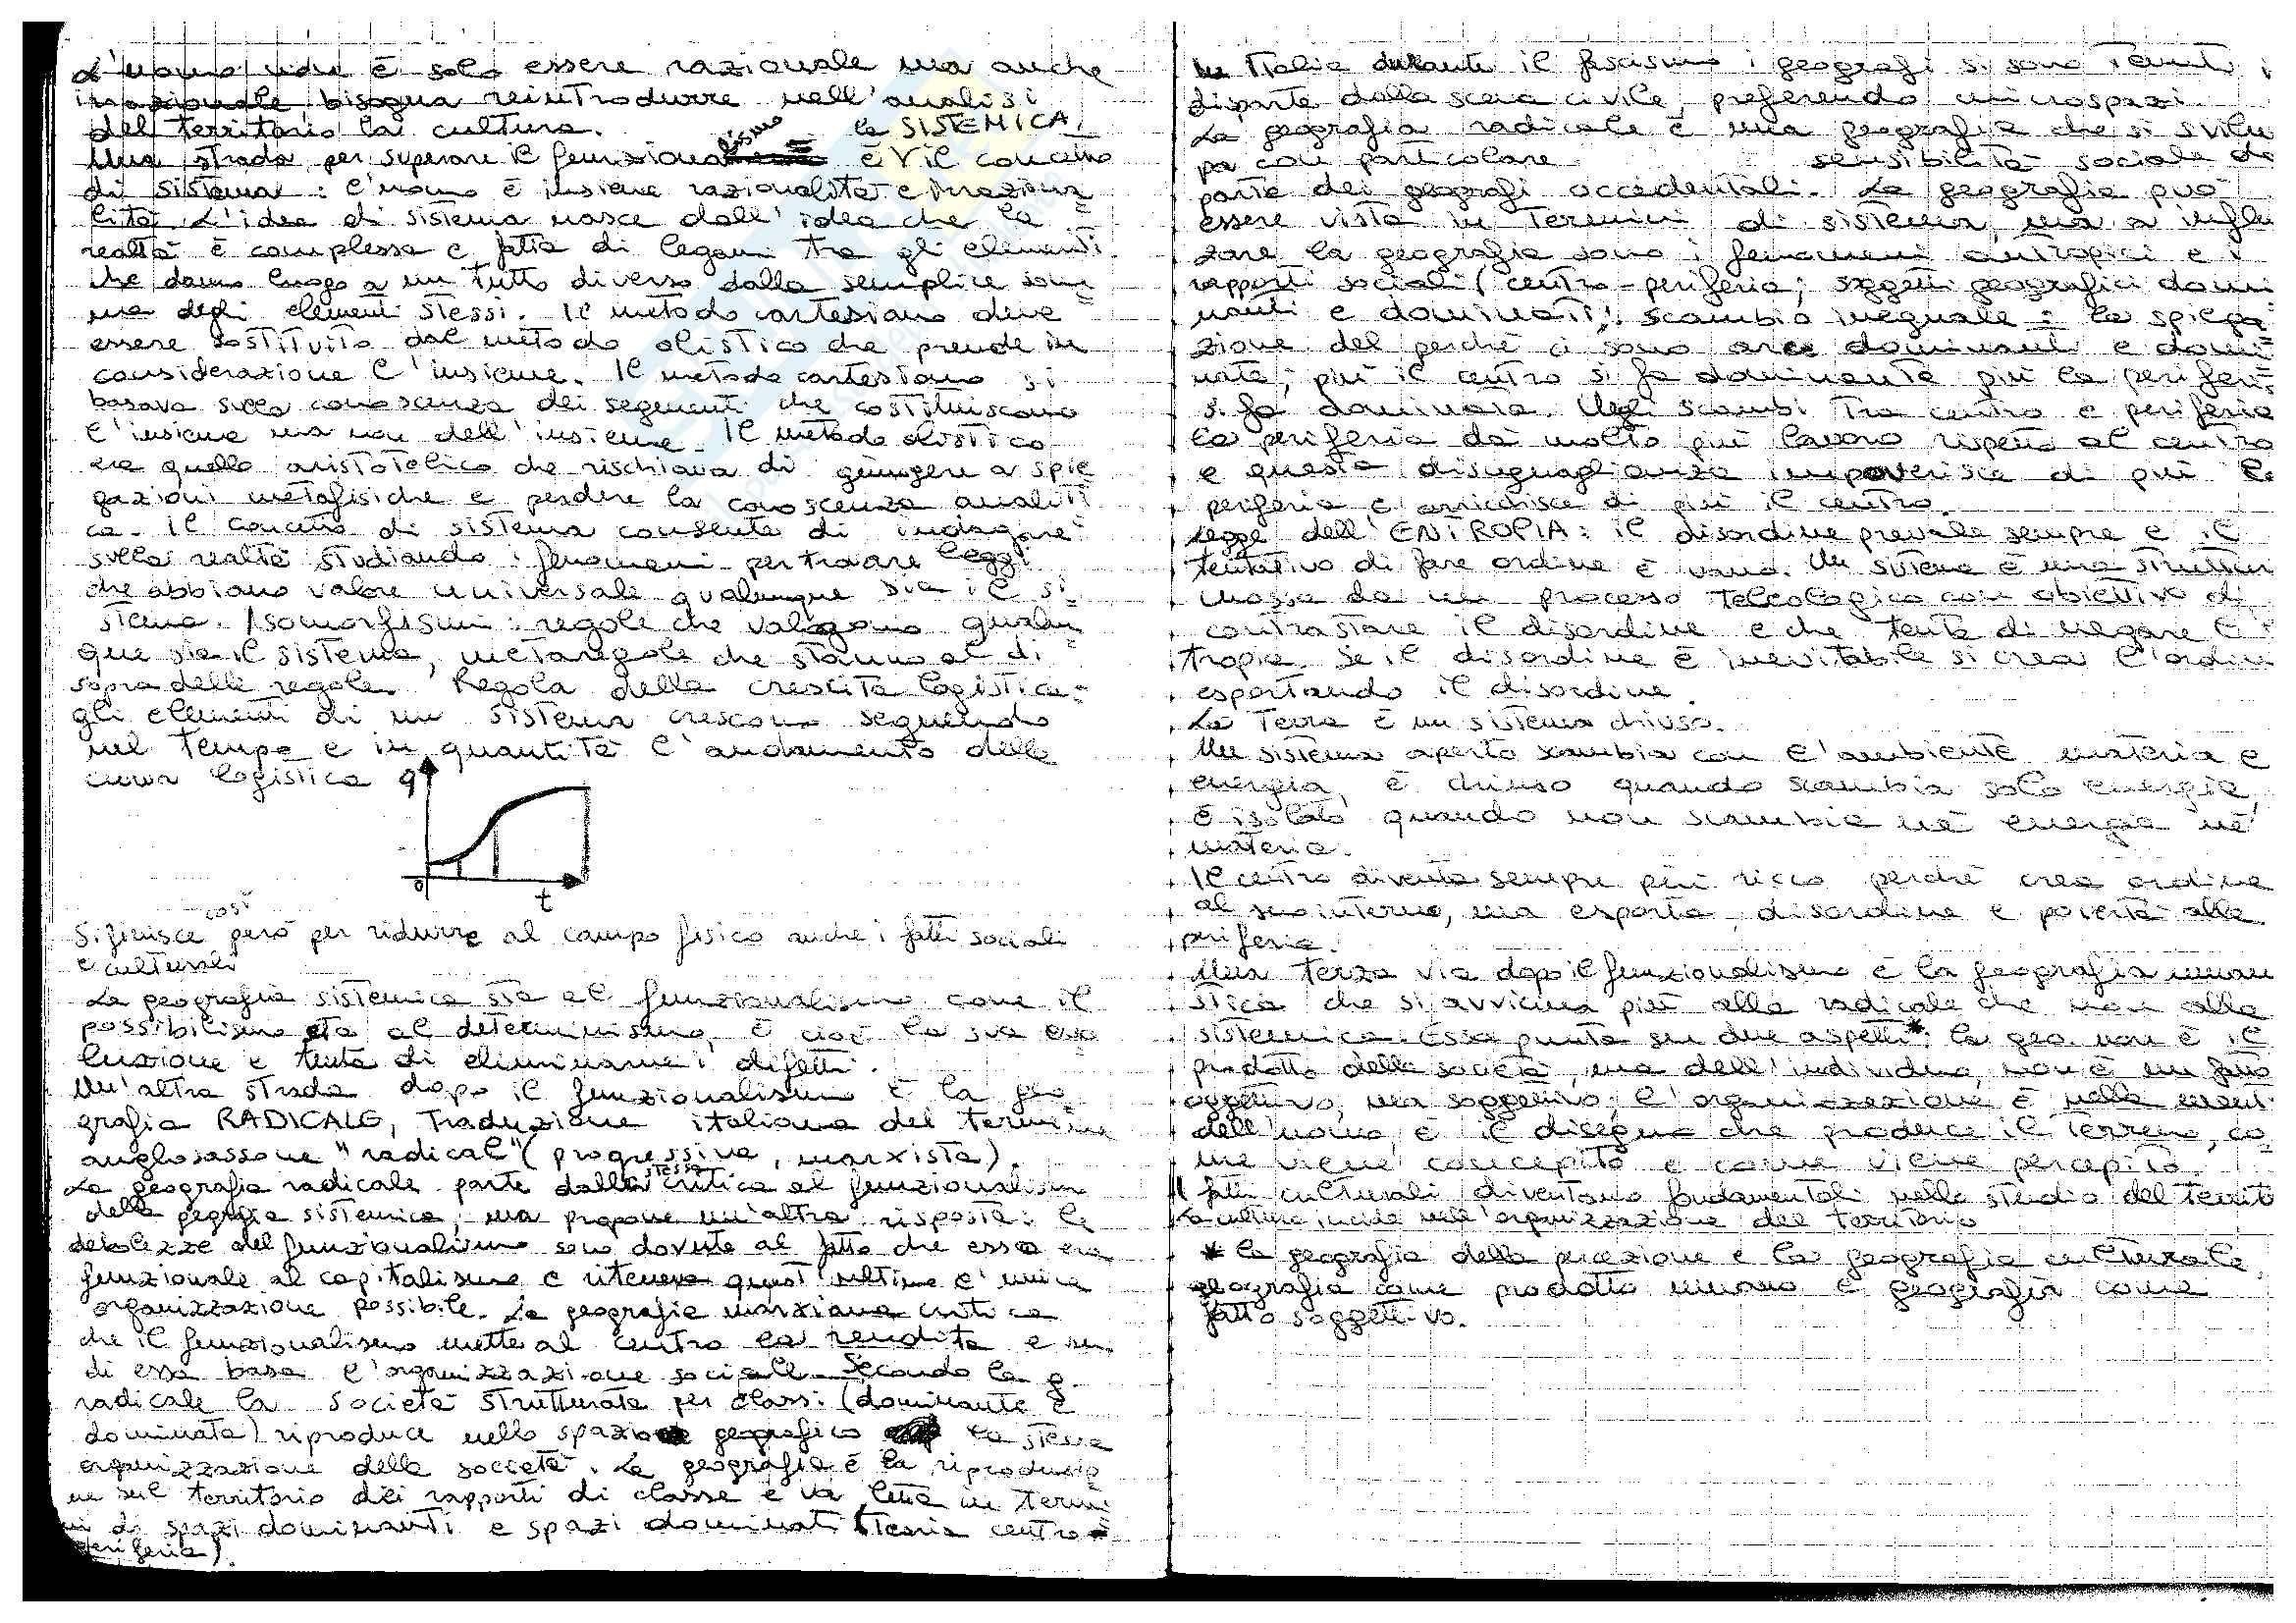 L'uomo non è solo essere razionale ma anche
irrazionale bisogna reintrodurre nell'analisi
del territorio la cultura.
Una strada per superare il funzionalismo è la SISTEMICA, il concetto
di sistema: l'uomo è insieme razionalità e irraziona=
lità. L'idea di sistema nasce dall'idea che la
realtà è complessa e fatta di legami tra gli elementi
che danno luogo a un tutto diverso dalla semplice som=
ma degli elementi stessi. Il metodo cartesiano deve
essere sostituito dal metodo olistico che prende in
considerazione l'insieme. Il metodo cartesiano si
basava sulla conoscenza dei segmenti che costituiscono
l'insieme ma non dell'insieme. Il metodo olistico
era quello aristotelico che rischiava di giungere a spie
gazioni metafisiche e perdere la conoscenza analiti
ca. Il concetto di sistema consente di indagare
sulla realtà studiando i fenomeni per trovare leggi
che abbiano valore universale qualunque sia il si=
stema. Isomorfismi: regole che valgono qualun
que sia il sistema, metaregole che stanno al di
sopra delle regole. Regola della crescita logistica:
gli elementi di un sistema crescono seguendo
nel tempo e in quantità l'andamento della
curva logistica q
0 t
Si finisce così però per ridurre al campo fisico anche i fatti sociali
e culturali
La geografia sistemica sta al funzionalismo come il
possibilismo sta al determinismo, è cioè la sua evo
luzione e tenta di eliminarne i difetti.
Un'altra strada dopo il funzionalismo è la geo
grafia RADICALE, traduzione italiana del termine
anglosassone "radical" (progressiva, marxista).
La geografia radicale parte dalla stessa critica al funzionalismo
della gegrafia sistemica, ma propone un'altra risposta: le
debolezze del funzionalismo sono dovute al fatto che esso era
funzionale al capitalismo e riteneva quest'ultimo l'unica
organizzazione possibile. La geografia marxiana critica
che il funzionalismo mette al centro la rendita e su
di essa basa l'organizzazione sociale. Secondo la g.
radicale la società strutturata per classi (dominante e
dominata) riproduce nello spazio geografico la stessa
organizzazione della società. La geografia è la riproduzio
ne sul territorio dei rapporti di classe e va letta in termi
ni di spazi dominanti e spazi dominati (teoria centro-
periferia).
In Italia durante il fascismo i geografi si sono tenuti in
disparte dalla scena civile, preferendo microspazi.
La geografia radicale è una geografia che si svilup
pa con particolare sensibilità sociale da
parte dei geografi occidentali. La geografia può
essere vista in termini di sistema, ma a influen
zare la geografia sono i fenomeni antropici e i
rapporti sociali (centro-periferia; soggetti geografici domi
nanti e dominati). Scambio ineguale: la spiega
zione del perché ci sono aree dominanti e domi
nate; più il centro si fa dominante più la periferia
si fa dominata. Negli scambi tra centro e periferia
la periferia dà molto più lavoro rispetto al centro
e questa disuguaglianza impoverisce di più la
periferia e arricchisce di più il centro.
Legge dell'ENTROPIA: il disordine prevale sempre e il
tentativo di fare ordine è vano. Un sistema è una struttura
mossa da un processo teleologico con obiettivo di
contrastare il disordine e che tenta di negare l'en
tropia. Se il disordine è inevitabile si crea l'ordine
esportando il disordine.
La Terra è un sistema chiuso.
Un sistema aperto scambia con l'ambiente materia e
energia, è chiuso quando scambia solo energia,
è isolato quando non scambia né energia né
materia.
Il centro diventa sempre più ricco perché crea ordine
al suo interno, ma esporta disordine e povertà alla
periferia.
Una terza via dopo il funzionalismo è la geografia umani
stica che si avvicina più alla radicale che non alla
sistemica. Essa punta su due aspetti*: la geo. non è il
prodotto della società, ma dell'individuo, non è un fatto
oggettivo, ma soggettivo; l'organizzazione è nella mente
dell'uomo, è il disegno che produce il terreno, co
me viene concepito e come viene percepito.
I fatti culturali diventano fondamentali nello studio del territ
La cultura incide nell'organizzazione del territorio
* la geografia della percezione e la geografia culturale,
geografia come prodotto umano e geografia come
fatto soggettivo.